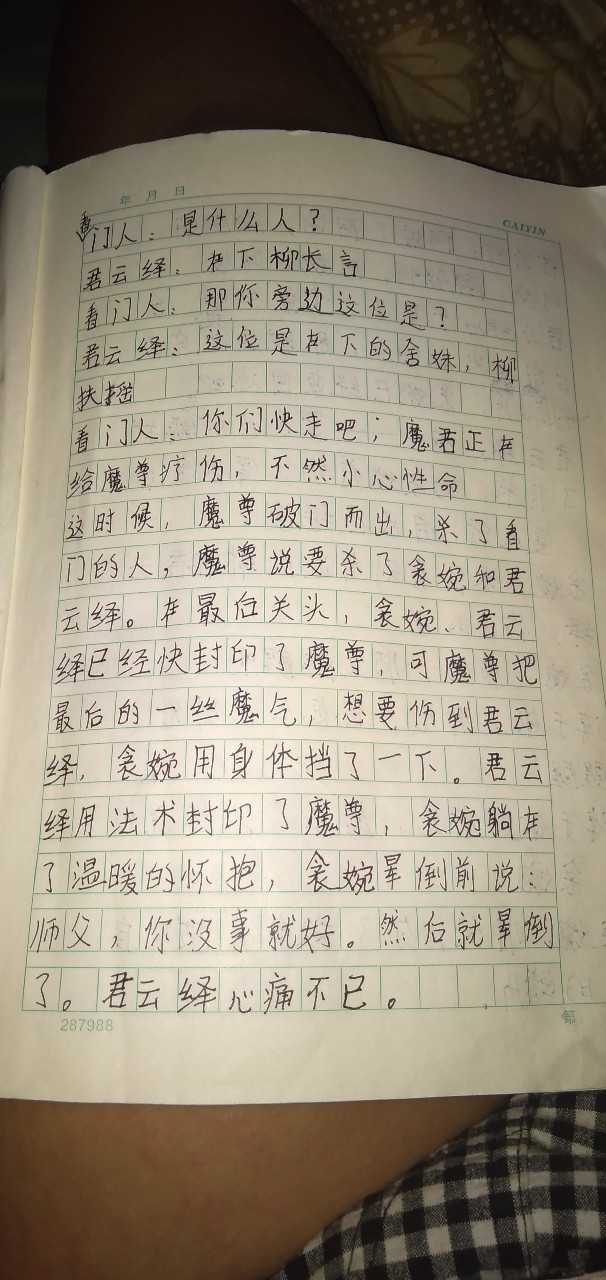 年 月 日
CAIYIN
看门人：是什么人？
君云绎：在下柳长言
看门人：那你旁边这位是？
君云绎：这位是在下的舍妹，柳
扶摇
看门人：你们快走吧；魔君正在
给魔尊疗伤，不然小心性命
这时候，魔尊破门而出，杀了看
门的人，魔尊说要杀了衾婉和君
云绎。在最后关头，衾婉、君云
绎已经快封印了魔尊，可魔尊把
最后的一丝魔气，想要伤到君云
绎，衾婉用身体挡了一下。君云
绎用法术封印了魔尊，衾婉躺在
了温暖的怀抱，衾婉晕倒前说：
师父，你没事就好。然后就晕倒
了。君云绎心痛不已。
287988
第